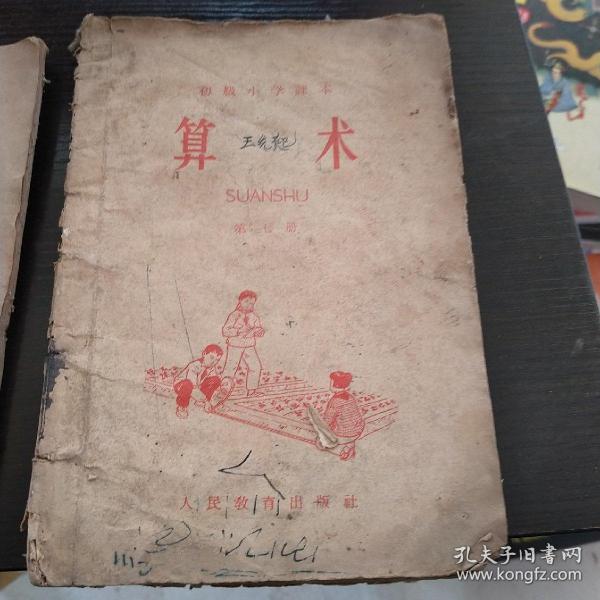 初級小学課本
算术
SUANSHU
第七册
人民教育出版社
孔夫子旧书网
www.kongfz.com